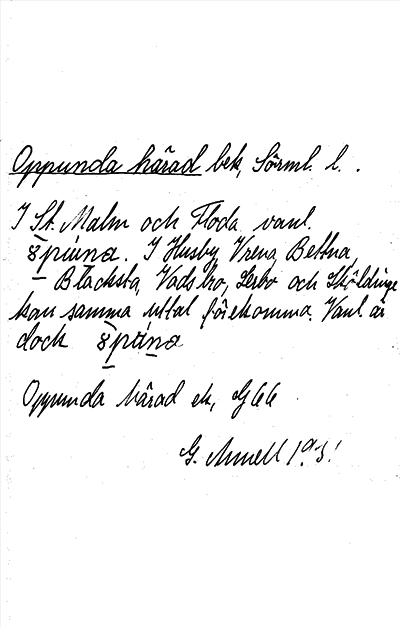 Oppunda härad bek, Sörml. l.
I St. Malm och Floda vanl.
I Husby, Vrena, Bettna,
Blacksta, Vadsbro, Lerbo och Sköldinge
kan samma uttal förekomma. Vanl. är
dock
Oppunda härad ek, G66
G.